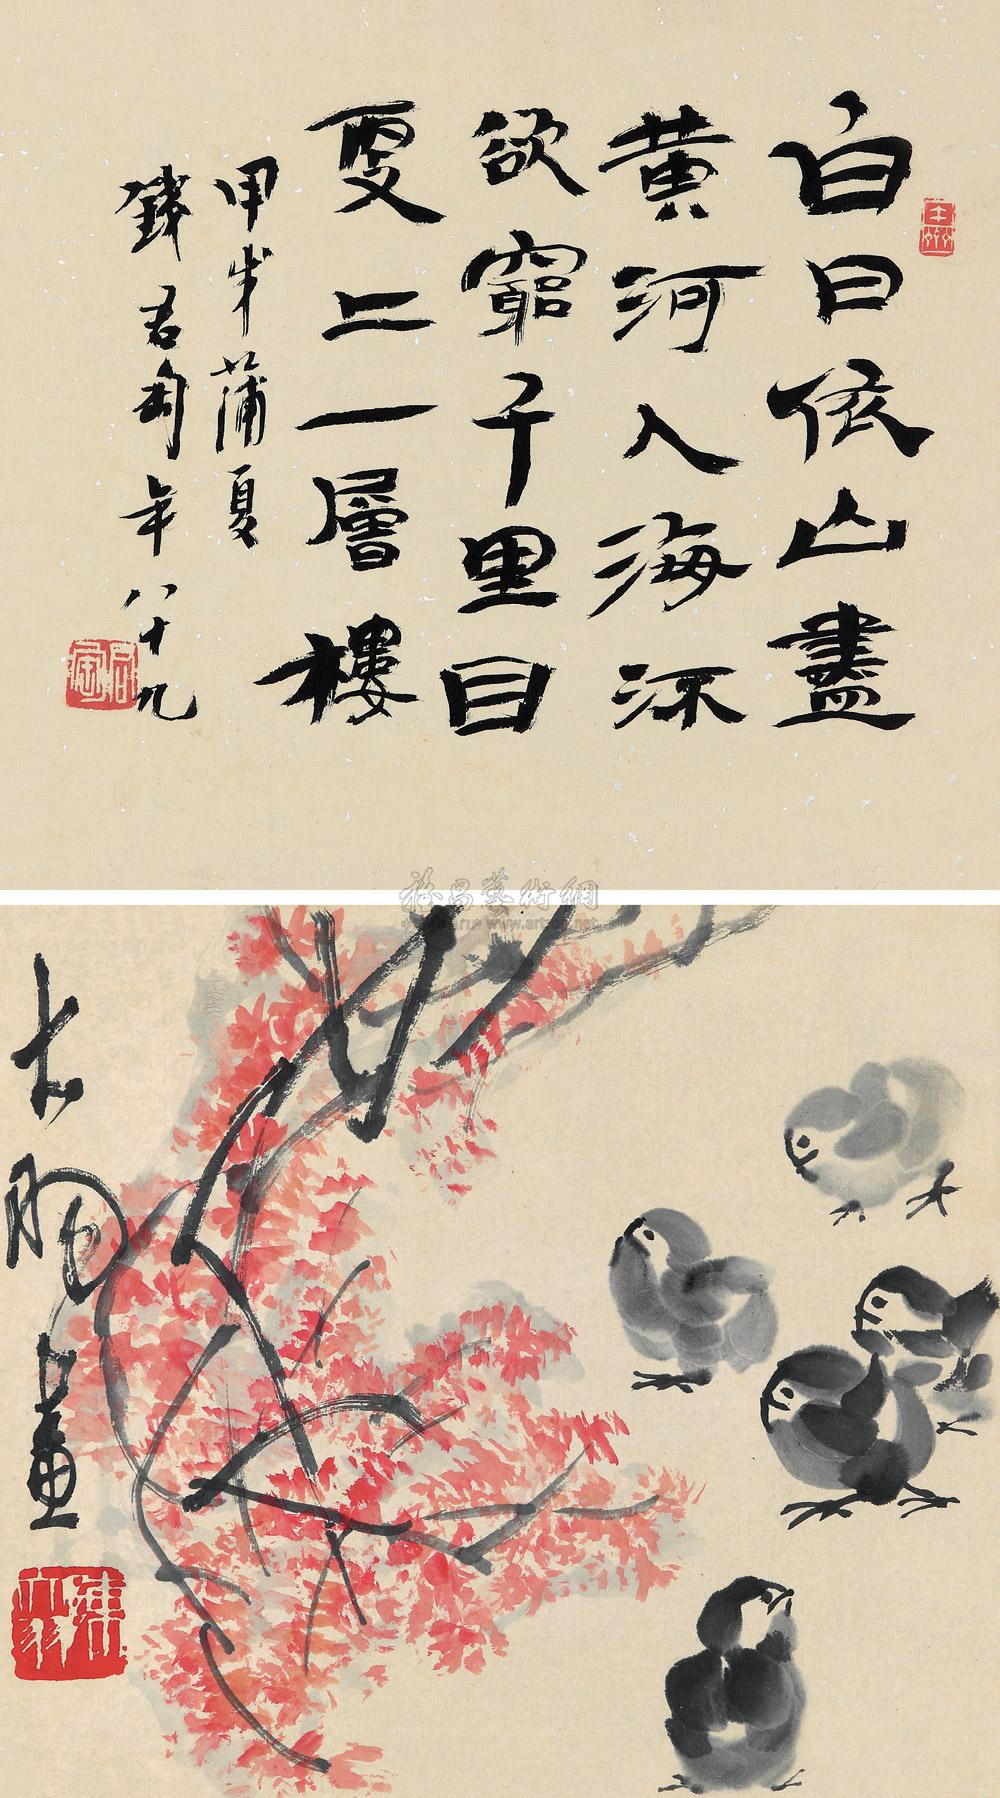 白日依山盡
黄河入海流
欲窮千里目
更上一層樓
甲戌蒲夏
錢君匋年八十九
君匋
雅昌藝術網
大羽畫